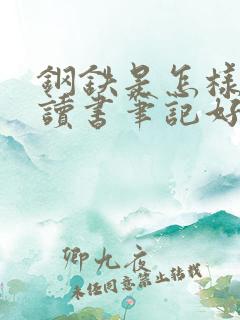 鋼鉄是怎様
讀書筆記好
卿九夜
未经同意禁止转载